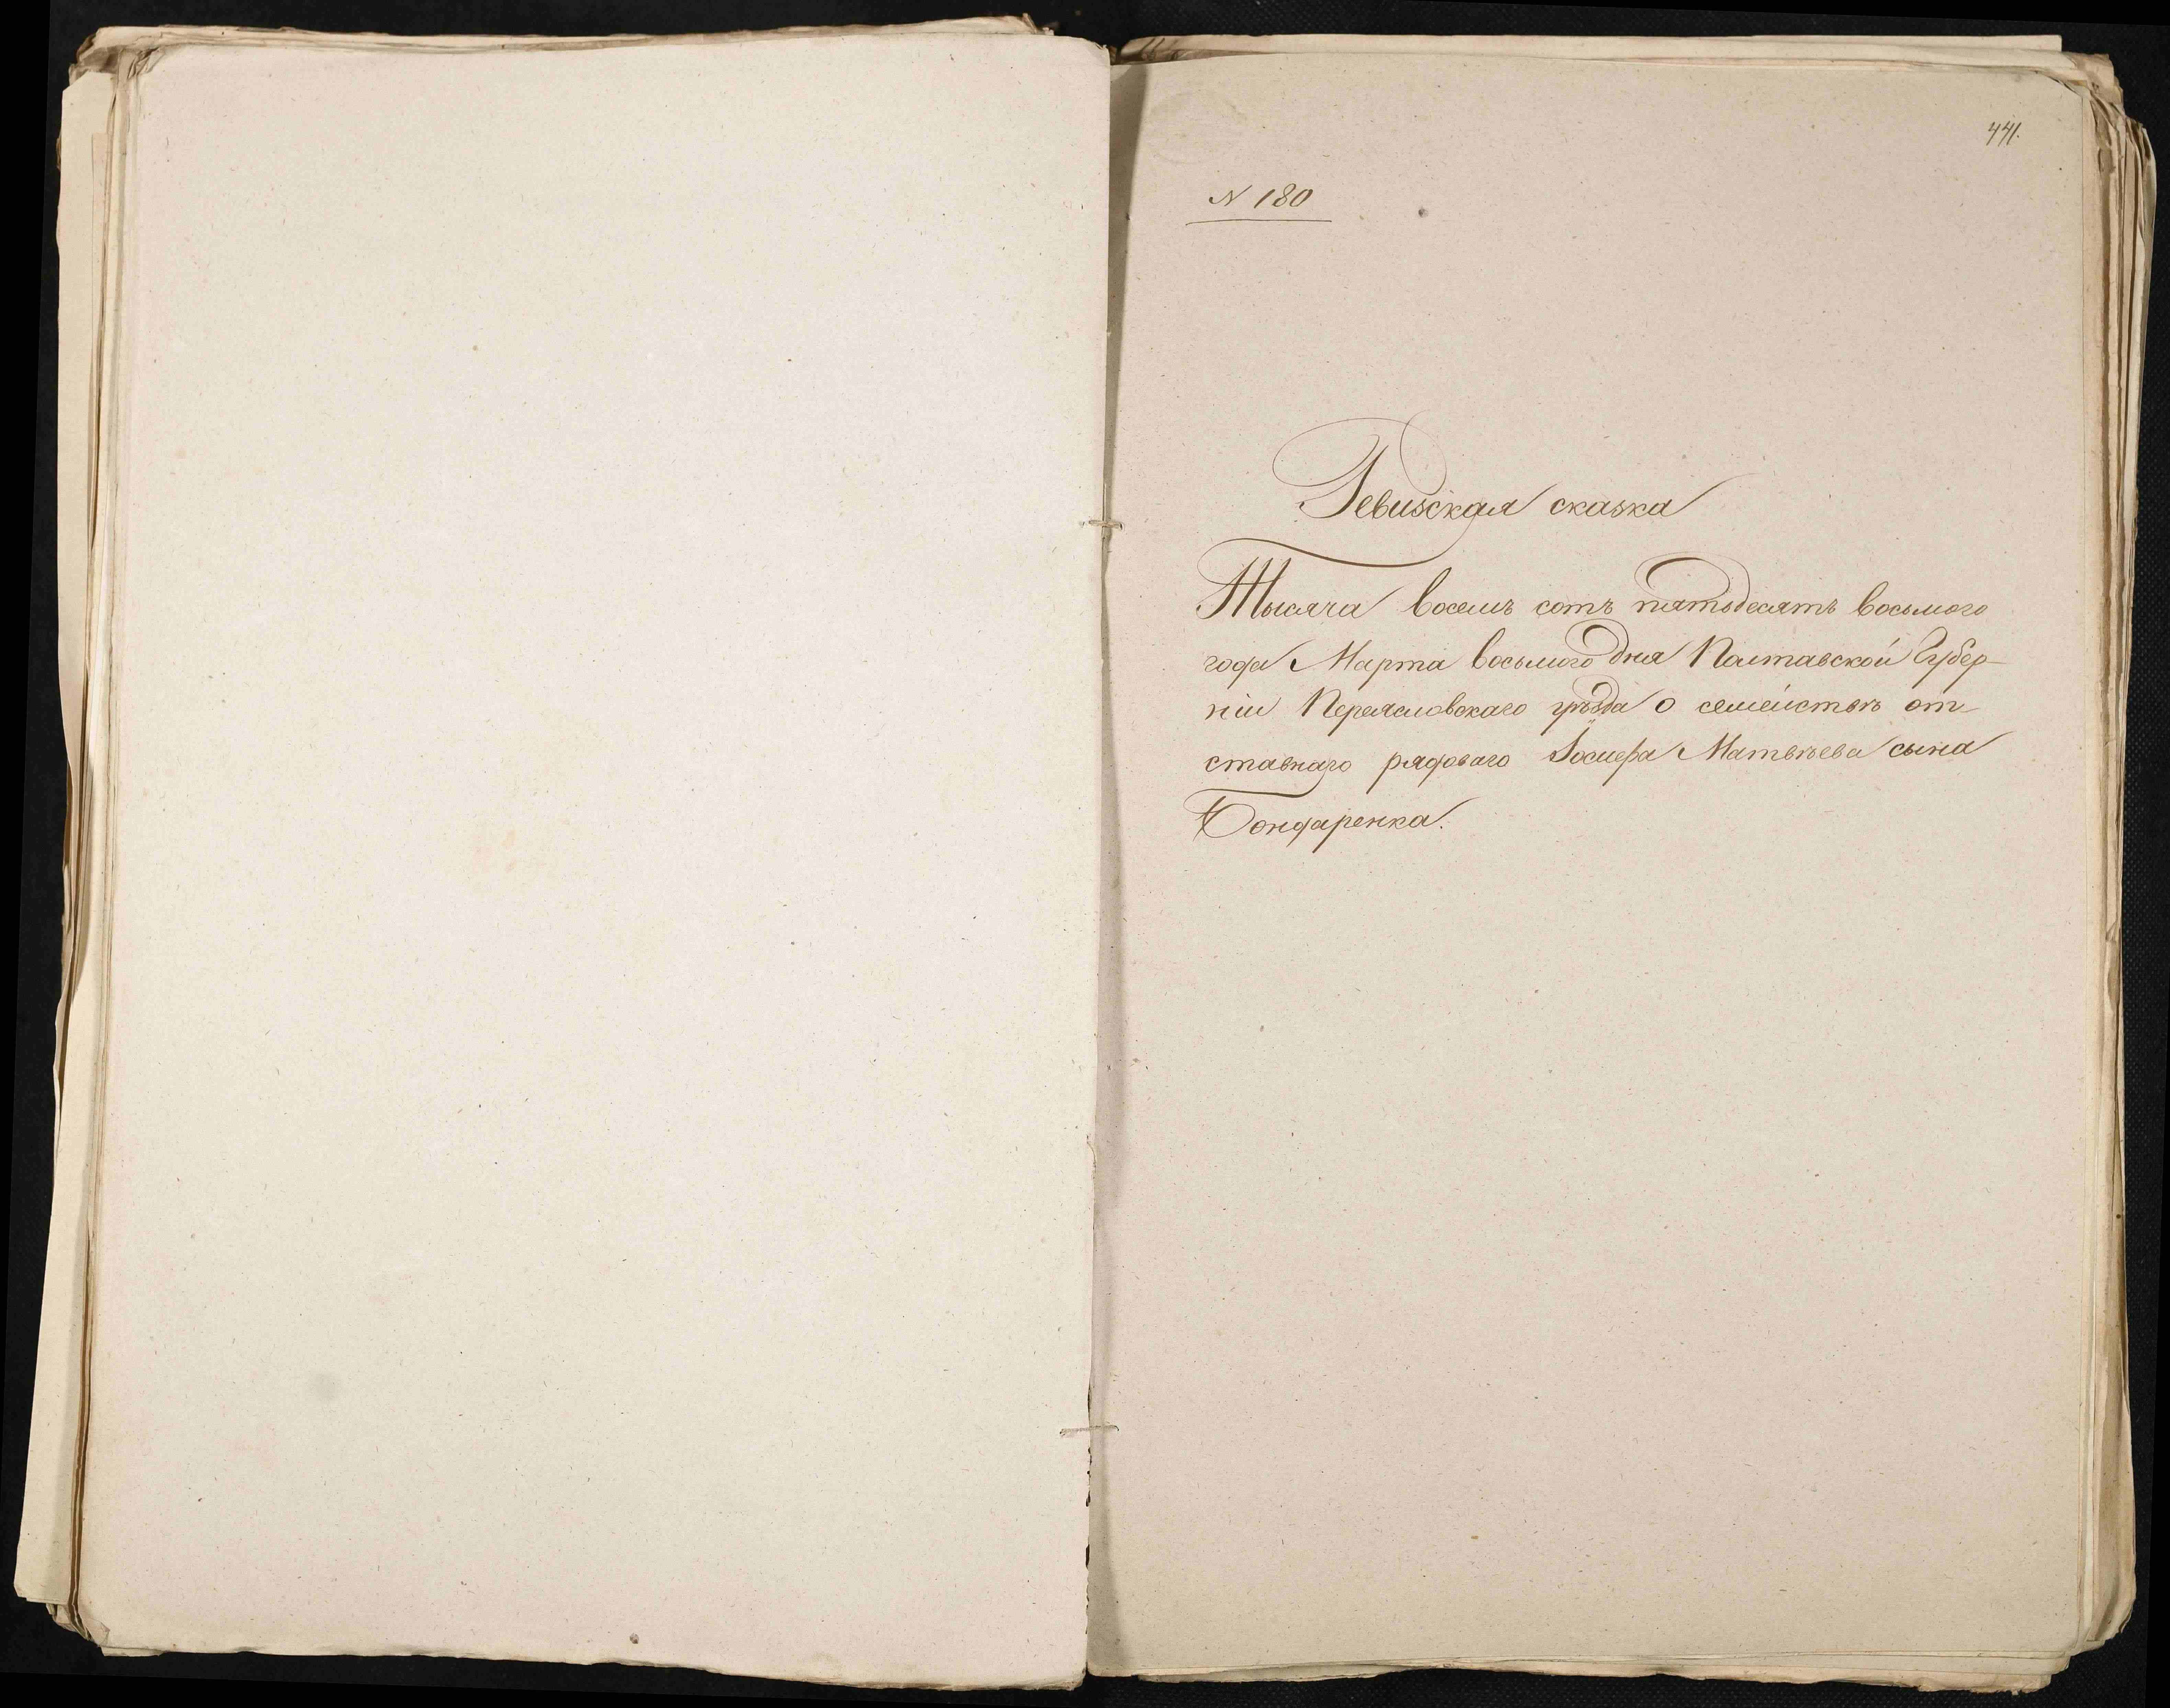 441.
N 180
Ревизская сказка
Тысяча восемь сотъ пятьдесятъ восьмого
года Марта восьмого дня Полтавской Губер-
ніи Переясловского уѣзда о семействѣ от-
ставнаго рядоваго Іосифа Матвѣева сына
Бондаренка.